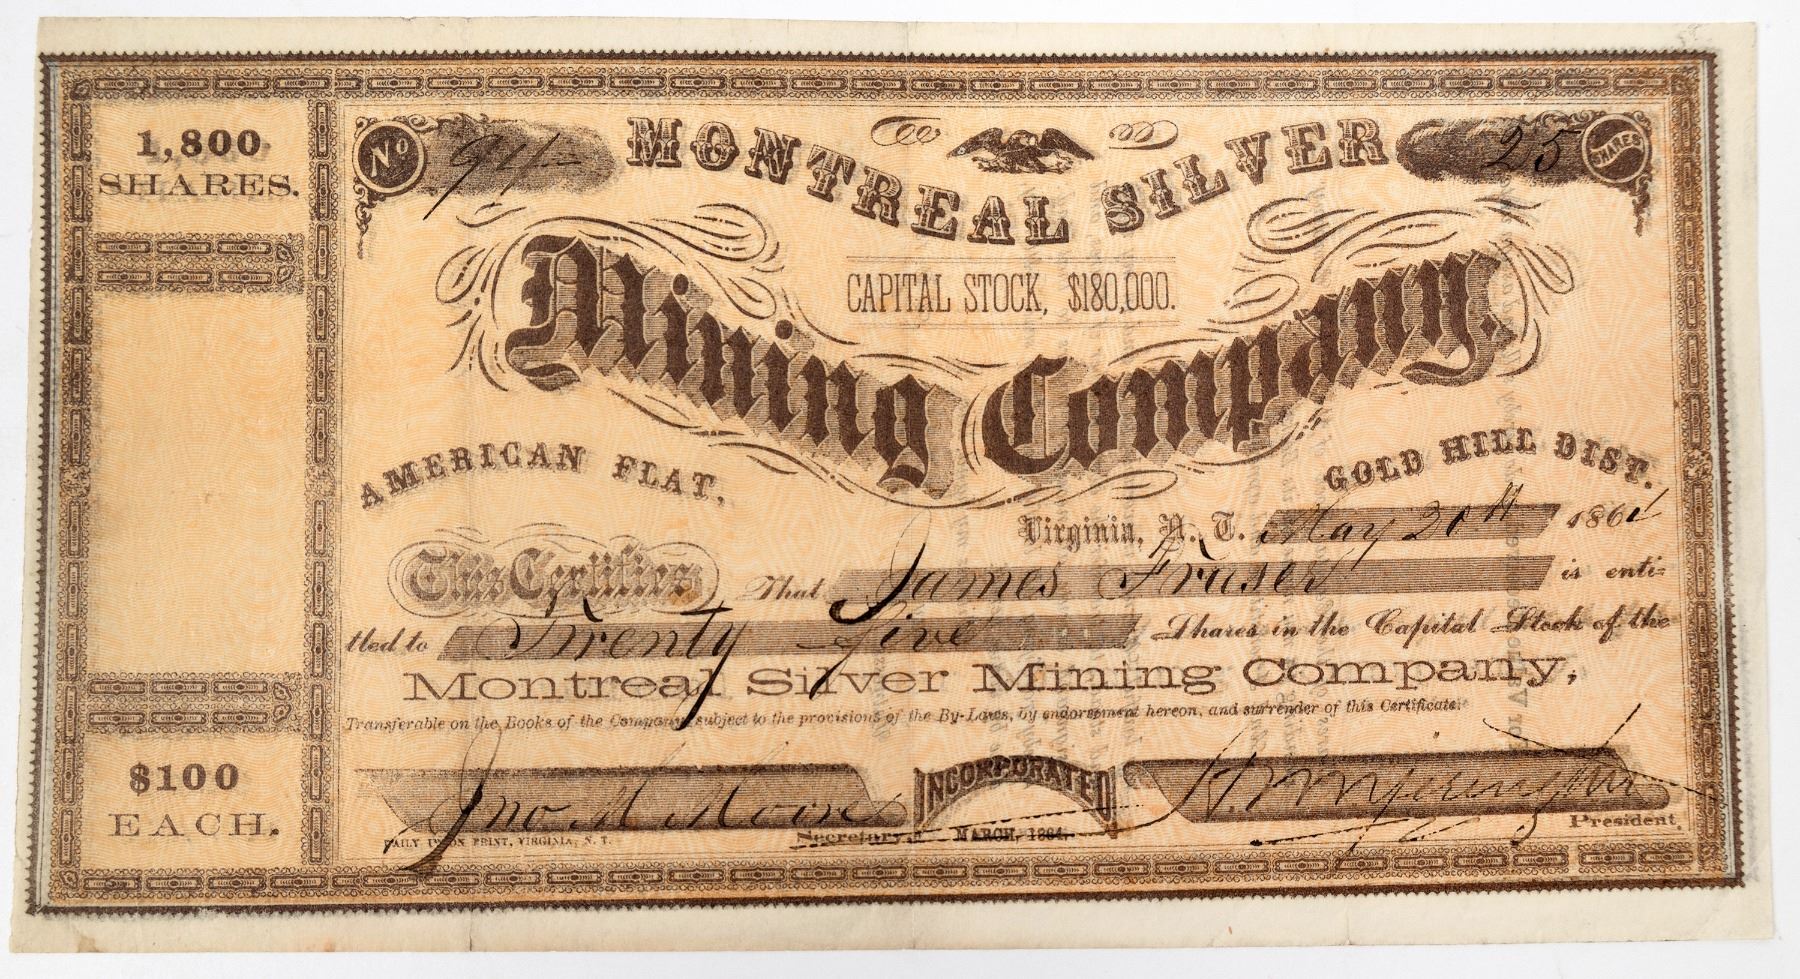 1,800
SHARES.
$100
EACH.
No 94
25 SHARES
MONTREAL SILVER
CAPITAL STOCK, $180,000.
Mining Company.
AMERICAN FLAT,
GOLD HILL DIST.
Virginia, N. T. May 30th 1864
This Certifies That James Fraser is enti=
tled to Twenty five Shares in the Capital Stock of the
Montreal Silver Mining Company,
Transferable on the Books of the Company, subject to the provisions of the By-Laws, by endorsement hereon, and surrender of this Certificate.
Jno M Moore
Secretary.
INCORPORATED
MARCH, 1864.
President.
DAILY UNION PRINT, VIRGINIA, N. T.